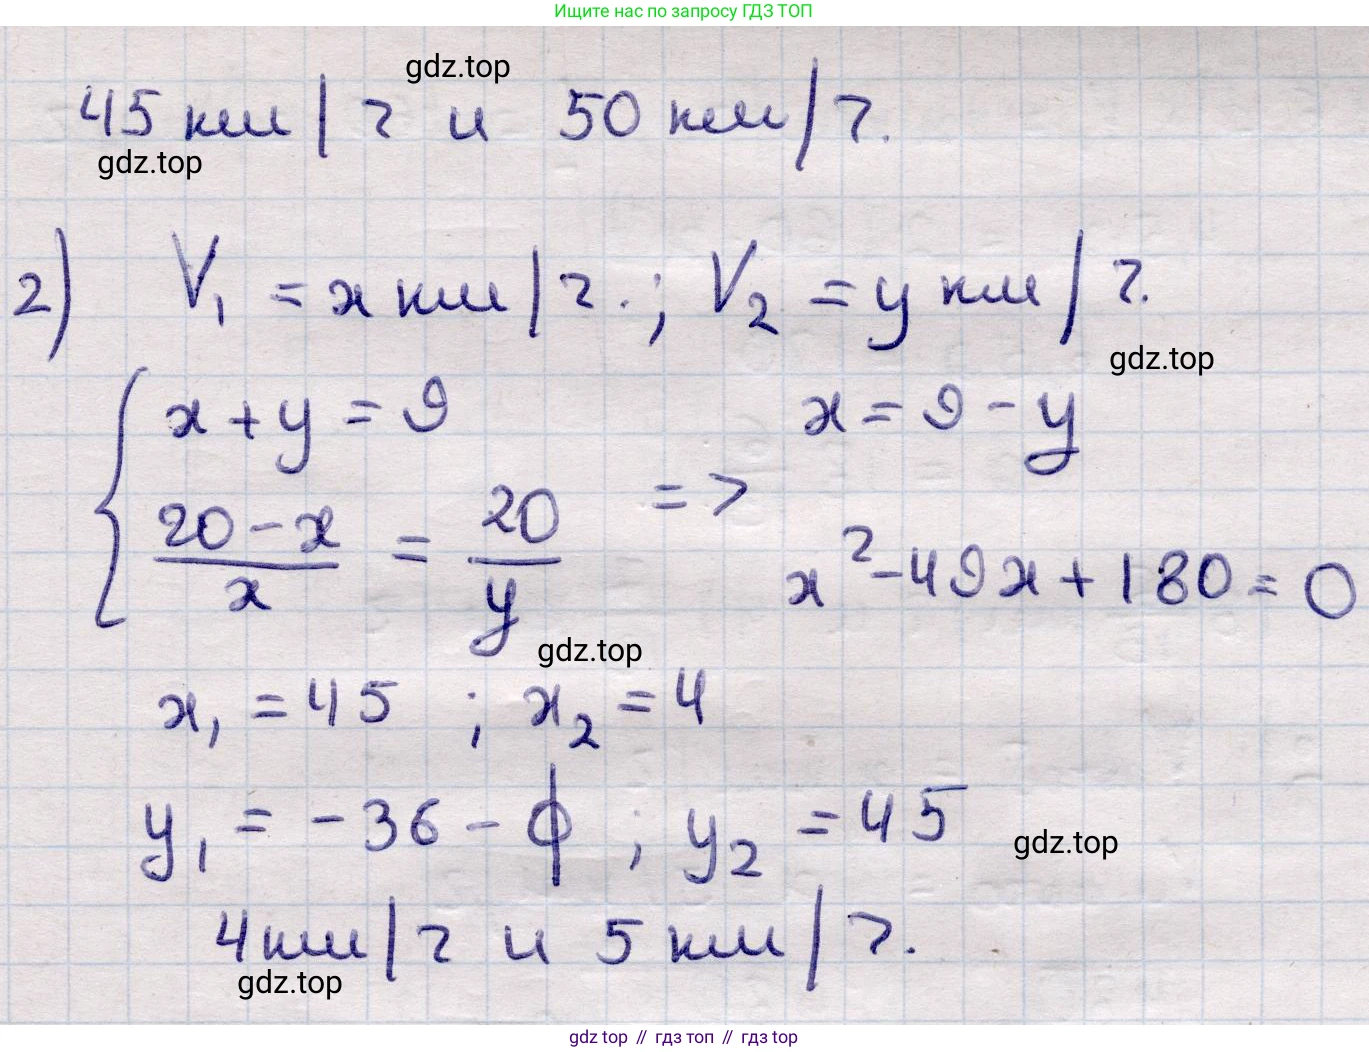 Ищите нас по запросу ГДЗ ТОП
gdz.top
45 км/ч и 50 км/ч.
gdz.top
2) V₁ = x км/ч.; V₂ = y км/ч.
gdz.top
{ x + y = 9
(20 - x)/x = 20/y
=> x = 9 - y
x² - 49x + 180 = 0
gdz.top
x₁ = 45 ; x₂ = 4
y₁ = -36 - ф ; y₂ = 45
gdz.top
4 км/ч и 5 км/ч.
gdz.top
gdz top // гдз топ // гдз top